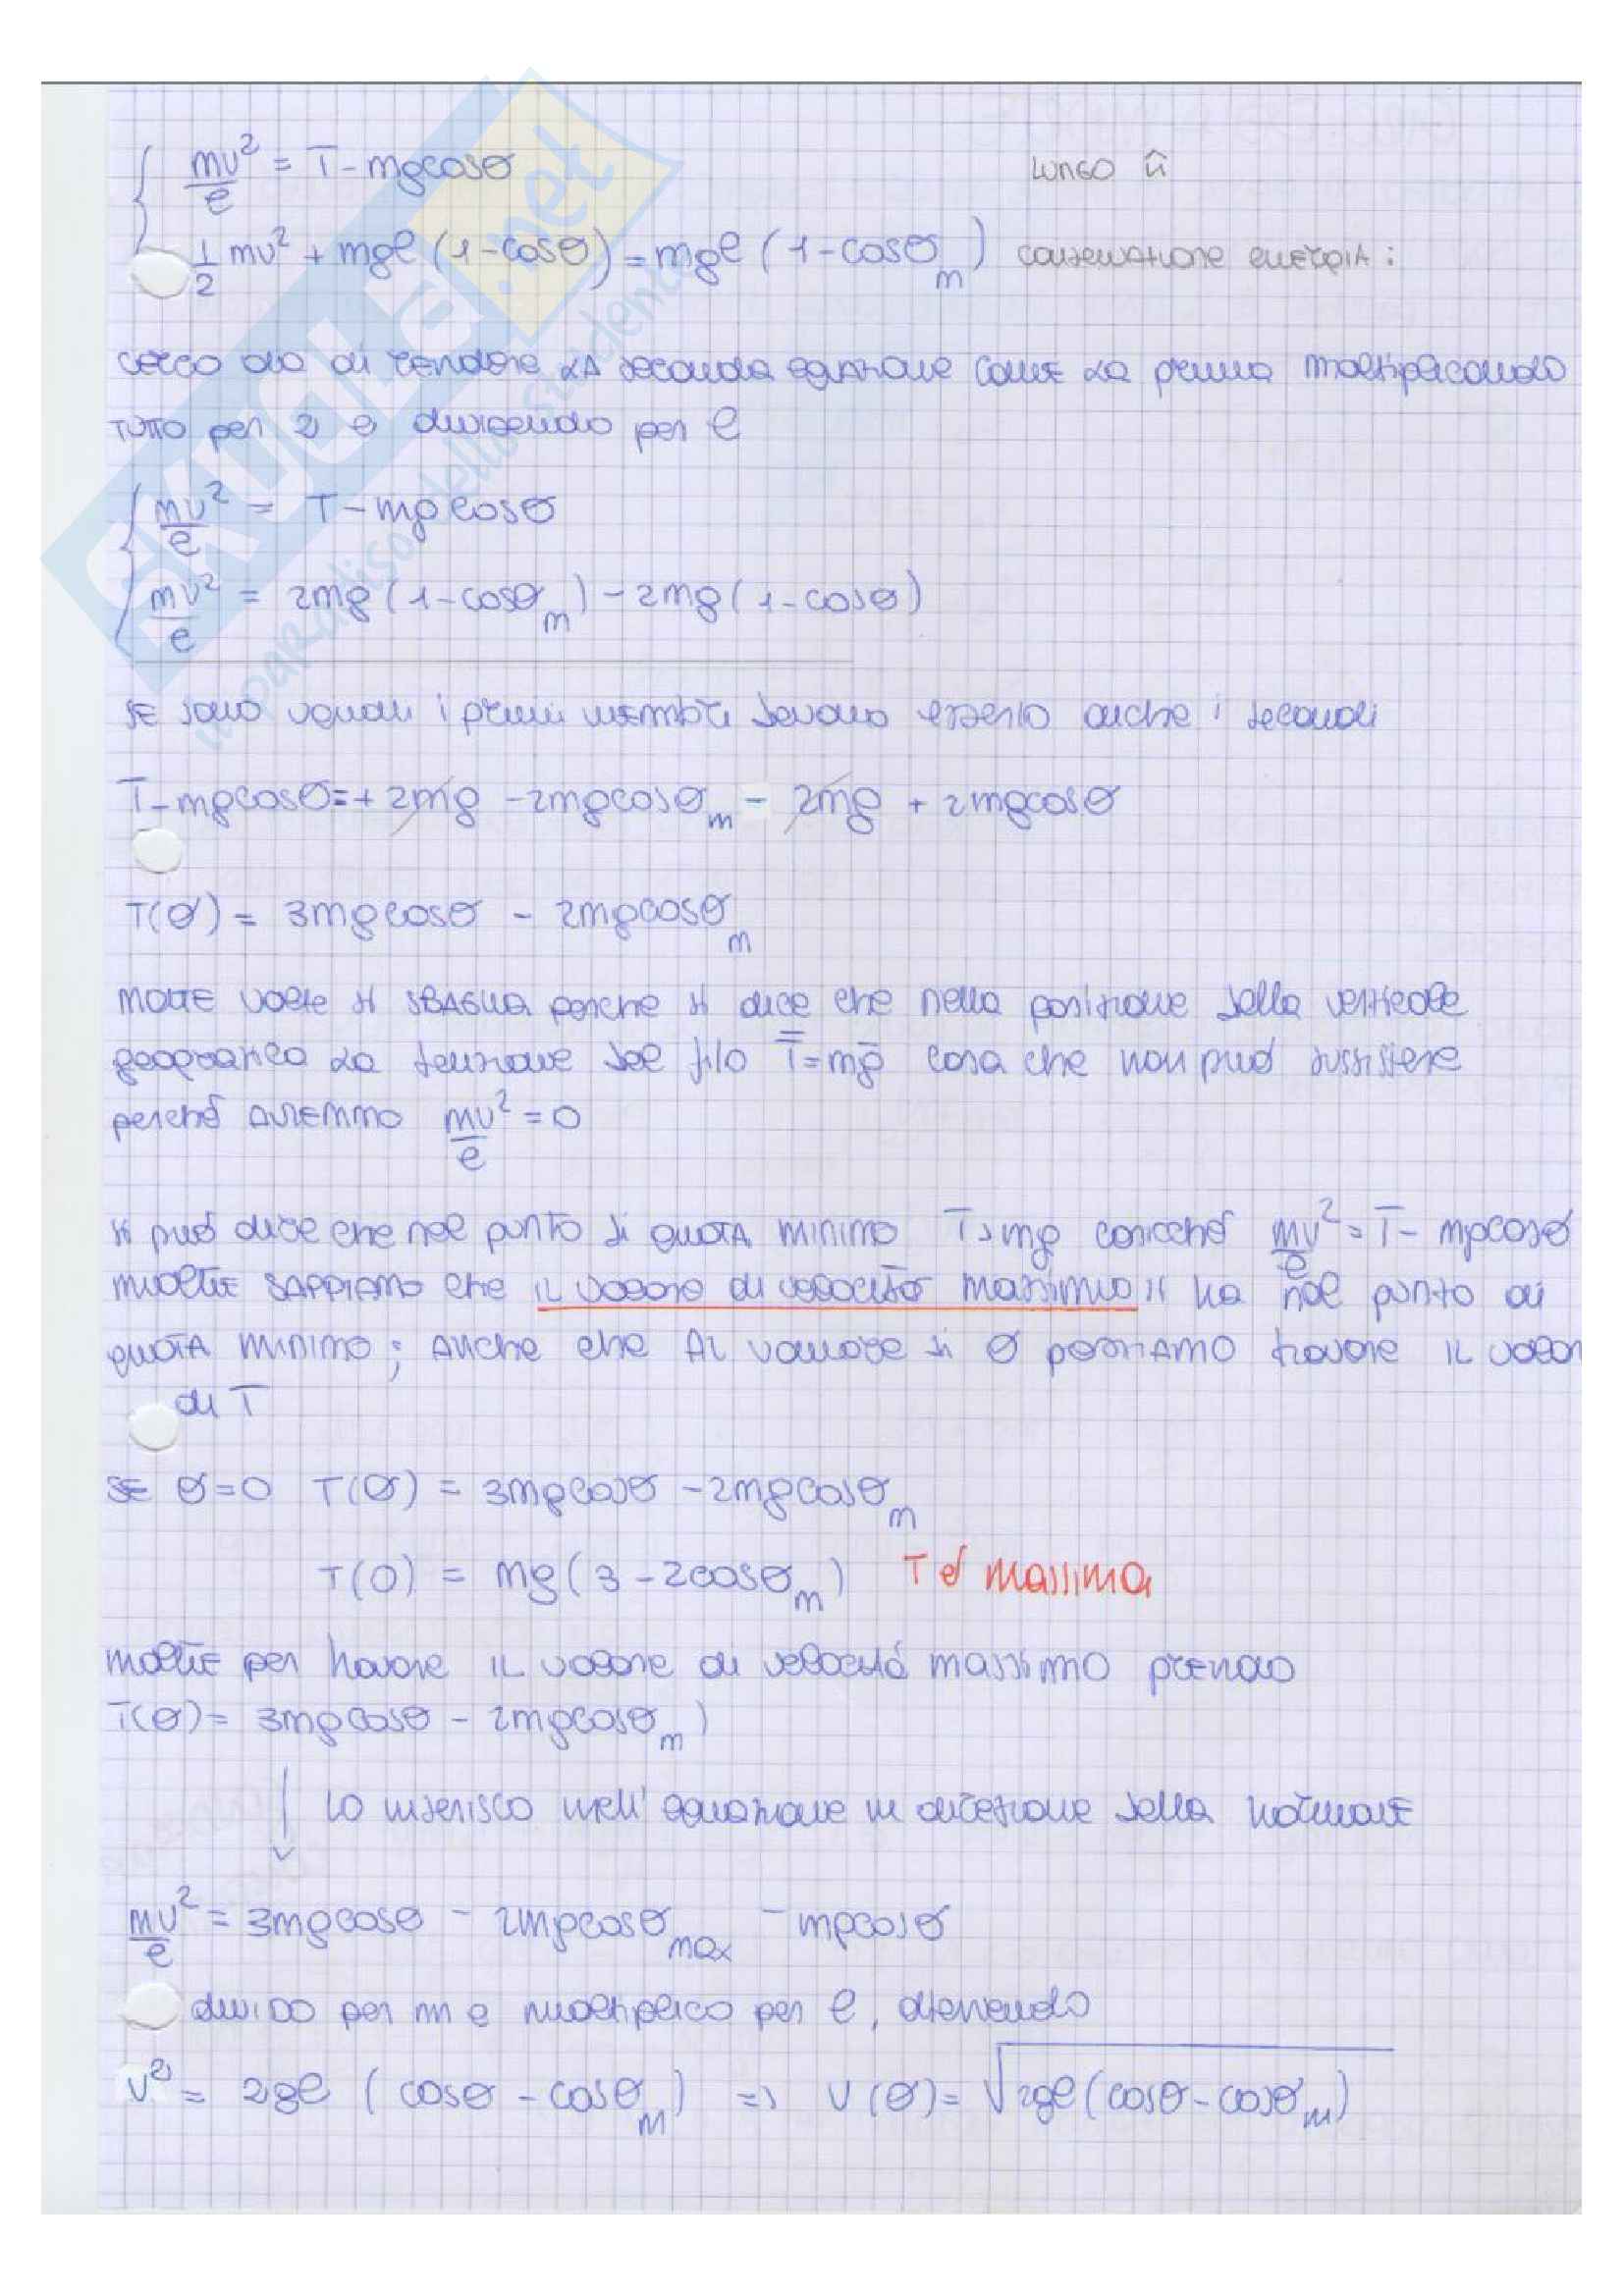 mv²/l = T - mgcosθ    LUNGO û
1/2 mv² + mgl (1-cosθ) = mgl (1-cosθm)    conservazione energia:
cerco ora di rendere la seconda equazione come la prima moltiplicando
tutto per 2 e dividendo per l
mv²/l = T - mg cosθ
mv²/l = 2mg (1-cosθm) - 2mg (1-cosθ)
se sono uguali i primi membri devono esserlo anche i secondi
T - mgcosθ = + 2mg - 2mgcosθm - 2mg + 2mgcosθ
T(θ) = 3mgcosθ - 2mgcosθm
molte volte si sbaglia perché si dice che nella posizione della verticale
geografica la tensione del filo T = mg cosa che non può sussistere
perché avremmo mv²/l = 0
si può dire che nel punto di quota minimo T > mg cosicché mv²/l = T - mgcosθ
inoltre sappiamo che il valore di velocità massimo si ha nel punto di
quota minimo; anche che al variare di θ possiamo trovare il valor
di T
se θ=0 T(θ) = 3mgcosθ - 2mgcosθm
T(0) = mg(3 - 2cosθm) T é massima
inoltre per trovare il valore di velocitá massimo prendo
T(θ) = 3mgcosθ - 2mgcosθm)
lo inserisco nell'equazione in direzione della normale
mv²/l = 3mgcosθ - 2mgcosθmax - mgcosθ
divido per m e moltiplico per l, ottenendo
v² = 2gl (cosθ - cosθM) => v(θ) = √2gl(cosθ - cosθM)
SKUOLA.net